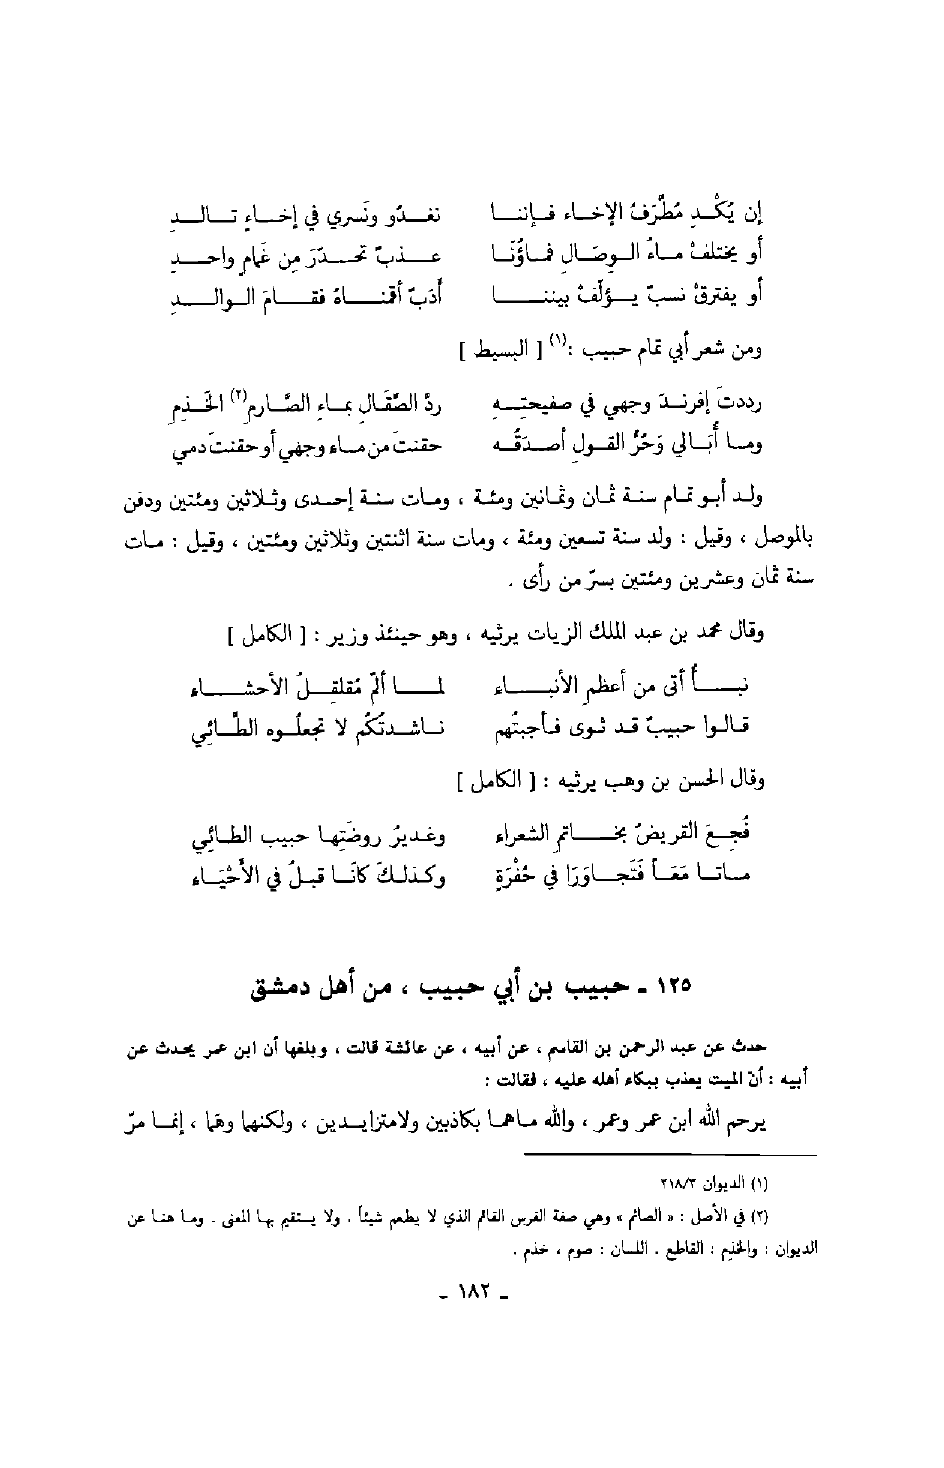 إن يُكْدِ مُطَّرَفُ الإخاء فإننا نغدُو ونَسري في إخاءٍ تالدِ
أو يختلفْ ماءُ الوِصَال فماؤنَا عذبٌ تحدّرَ مِن غَمامٍ واحدِ
أو يفترقْ نسبٌ يؤلّفْ بيننا أدَبٌ أقمناهُ مقامَ الوالدِ
ومن شعر أبي تمام حبيب :(١) [ البسيط ]
رددتَ إفرندَ وجهي في صفيحتِهِ ردَّ الصِّقَالِ بماءِ الصَّارمِ(٢) الخَذِمِ
وما أُبَالي وَخَيْرُ القولِ أصدَقُه حقنتَ من ماء وجهي أو حقنتَ دمي
ولد أبو تمام سنة ثمان وثمانين ومئة ، ومات سنة إحدى وثلاثين ومئتين ودفن
بالموصل ، وقيل : ولد سنة تسعين ومئة ، ومات سنة اثنتين وثلاثين ومئتين ، وقيل : مات
سنة ثمان وعشرين ومئتين بسرّ من رأى .
وقال محمد بن عبد الملك الزيات يرثيه ، وهو حينئذ وزير : [ الكامل ]
نبأ أتى من أعظمِ الأنباء لما ألمّ مُقلقلُ الأحشاء
قالوا حبيبٌ قد ثوى فأجبتُهم ناشدتُكُم لا تجعلُوه الطَّائِي
وقال الحسن بن وهب يرثيه : [ الكامل ]
فُجعَ القريضُ بخاتمِ الشعراءِ وغديرُ روضَتِها حبيب الطائِي
ماتا مَعَاً فَتَجاوَرَا في حُفْرَةٍ وكذلكَ كَانَا قبلُ في الأحْيَاء
١٢٥ - حبيب بن أبي حبيب ، من أهل دمشق
حدث عن عبد الرحمن بن القاسم ، عن أبيه ، عن عائشة قالت ، وبلغها أن ابن عمر يحدث عن
أبيه : أنّ الميت يعذب ببكاء أهله عليه ، فقالت :
يرحم الله ابن عمر وعمر ، والله ماهما بكاذبين ولامتزايدين ، ولكنها وهما ، إنما مرّ
(١) الديوان ٢١٨/٣
(٢) في الأصل : « الصائم » وهي صفة الفرس القائم الذي لا يطعم شيئاً . ولا يستقيم بها المعنى . وما هنا عن
الديوان : والخذم : القاطع . اللسان : صوم ، خذم .
- ١٨٢ -